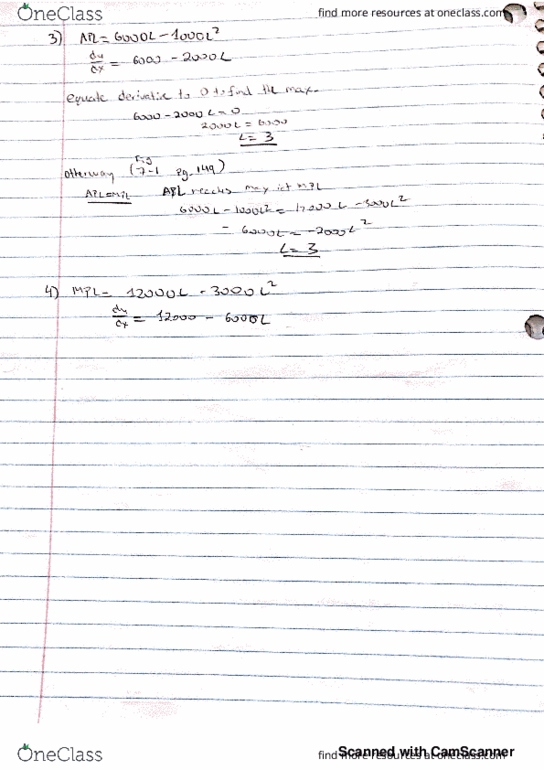 OneClass
find more resources at oneclass.com
3) APL = 6000L - 1000L²
dy/dx = 6000 - 2000L
equate derivative to 0 to find the max.
6000 - 2000L = 0
2000L = 6000
L = 3
otherway (Fig 7-1 pg. 149)
APL = MPL APL reaches max at MPL
6000L - 1000L² = 12000L - 3000L²
= 6000L = -2000L²
L = 3
4) MPL = 12000L - 3000L²
dy/dx = 12000 - 6000L
OneClass
find more resources at oneclass.com
Scanned with CamScanner